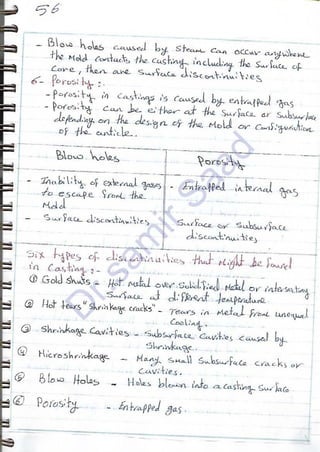 56
- Blow holes caused by steam can occur anywhere
the Mold contacts the casting, including the Surface of
Core, then are Surface discontinuities
6- Porosity :-
- Porosity in castings is caused by entrapped gas
- Porosity can be either at the Surface or Subsurface
depending on the design of the Mold or Configuration
of the article.
Blow holes Porosity
- Inability of external gases - Entrapped internal gas
to escape from the
Mold
- Surface discontinuities Surface or Subsurface
discontinuities
Six types of discontinuities that Might be found
in Casting :-
① Cold Shuts - Hot Metal over Solidified Metal or interseting
Surface at different temperature
② Hot tears "Shrinkage cracks" - Tears in Metal from unequal
Cooling.
③ Shrinkage Cavities - Subsurface Cavities Caused by
Shrinkage.
④ Microshrinkage - Many Small Subsurface cracks or
Cavities.
⑤ Blow Holes - Holes blown into a casting Surface
⑥ Porosity - Entrapped gas.
samir Saad